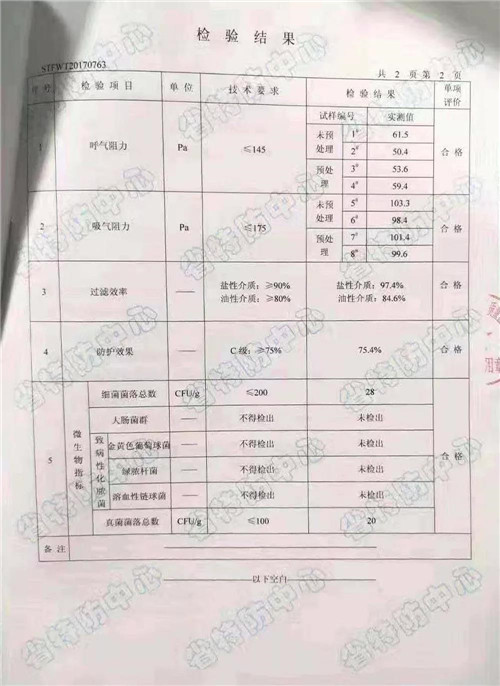 检验结果
STFWT20170763
共 2 页 第 2 页
序号 检验项目 单位 技术要求 检验结果 单项评价
试样编号 实测值
1 呼气阻力 Pa ≤145 合格
未预处理 1# 61.5
2# 50.4
预处理 3# 53.6
4# 59.4
2 吸气阻力 Pa ≤175 合格
未预处理 5# 103.3
6# 98.4
预处理 7# 101.4
8# 99.6
3 过滤效率 —— 盐性介质：≥90% 盐性介质：97.4% 合格
油性介质：≥80% 油性介质：84.6%
4 防护效果 —— C 级：≥75% 75.4% 合格
5 微生物指标 合格
细菌菌落总数 CFU/g ≤200 28
大肠菌群 —— 不得检出 未检出
致病性化脓菌
金黄色葡萄球菌 —— 不得检出 未检出
绿脓杆菌 —— 不得检出 未检出
溶血性链球菌 —— 不得检出 未检出
真菌菌落总数 CFU/g ≤100 20
备注
以下空白
省特防中心